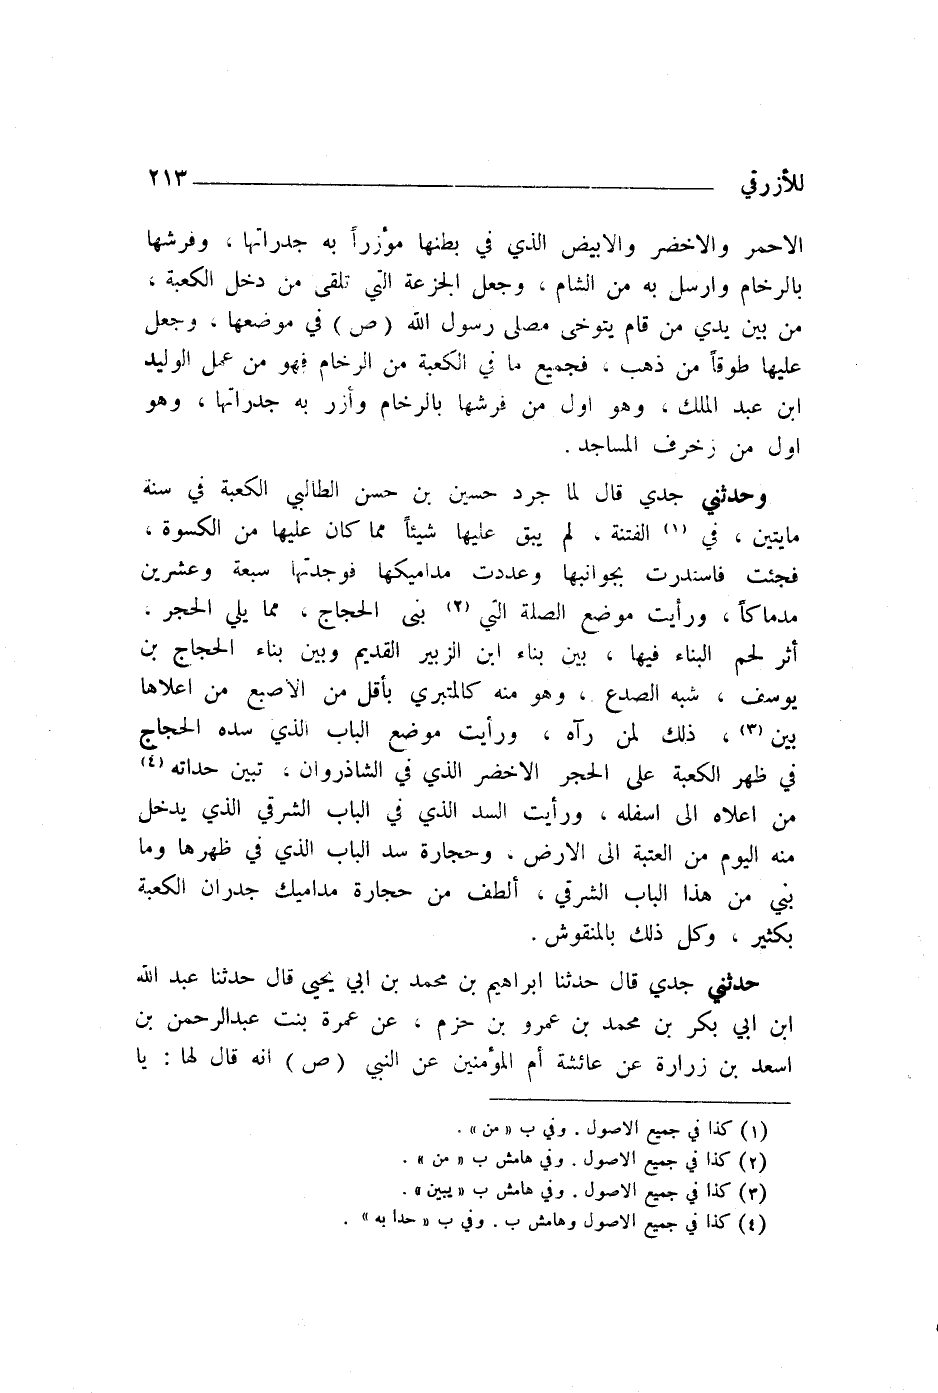 للأزرقي ٢١٣
الاحمر والاخضر والابيض الذي في بطنها مؤزراً به جدراتها ، وفرشها
بالرخام وارسل به من الشام ، وجعل الجزعة التي تلقى من دخل الكعبة ،
من بين يدي من قام يتوخى مصلى رسول الله ( ص ) في موضعها ، وجعل
عليها طوقاً من ذهب ، فجميع ما في الكعبة من الرخام فهو من عمل الوليد
ابن عبد الملك ، وهو اول من فرشها بالرخام وأزر به جدراتها ، وهو
اول من زخرف المساجد .
وحدثني جدي قال لما جرد حسين بن حسن الطالبي الكعبة في سنة
مايتين ، في (١) الفتنة ، لم يبق عليها شيئاً مما كان عليها من الكسوة ،
فجئت فاستدرت بجوانبها وعددت مداميكها فوجدتها سبعة وعشرين
مدماكاً ، ورأيت موضع الصلة التي (٢) بنى الحجاج ، مما يلي الحجر .
أثر لحم البناء فيها ، بين بناء ابن الزبير القديم وبين بناء الحجاج بن
يوسف ، شبه الصدع ، وهو منه كالمتبري بأقل من الأصبع من اعلاها
بين (٣) ، ذلك لمن رآه ، ورأيت موضع الباب الذي سده الحجاج
في ظهر الكعبة على الحجر الاخضر الذي في الشاذروان ، تبين حداته (٤)
من اعلاه الى اسفله ، ورأيت السد الذي في الباب الشرقي الذي يدخل
منه اليوم من العتبة الى الارض . وحجارة سد الباب الذي في ظهرها وما
بني من هذا الباب الشرقي ، ألطف من حجارة مداميك جدران الكعبة
بكثير ، وكل ذلك بالمنقوش .
حدثني جدي قال حدثنا ابراهيم بن محمد بن ابي يحيى قال حدثنا عبد الله
ابن ابي بكر بن محمد بن عمرو بن حزم ، عن عمرة بنت عبدالرحمن بن
اسعد بن زرارة عن عائشة أم المؤمنين عن النبي ( ص ) انه قال لها : يا
(١) كذا في جميع الاصول . وفي ب « من » .
(٢) كذا في جميع الاصول . وفي هامش ب « من » .
(٣) كذا في جميع الاصول . وفي هامش ب « يبين » .
(٤) كذا في جميع الاصول وهامش ب . وفي ب « حدا به » .